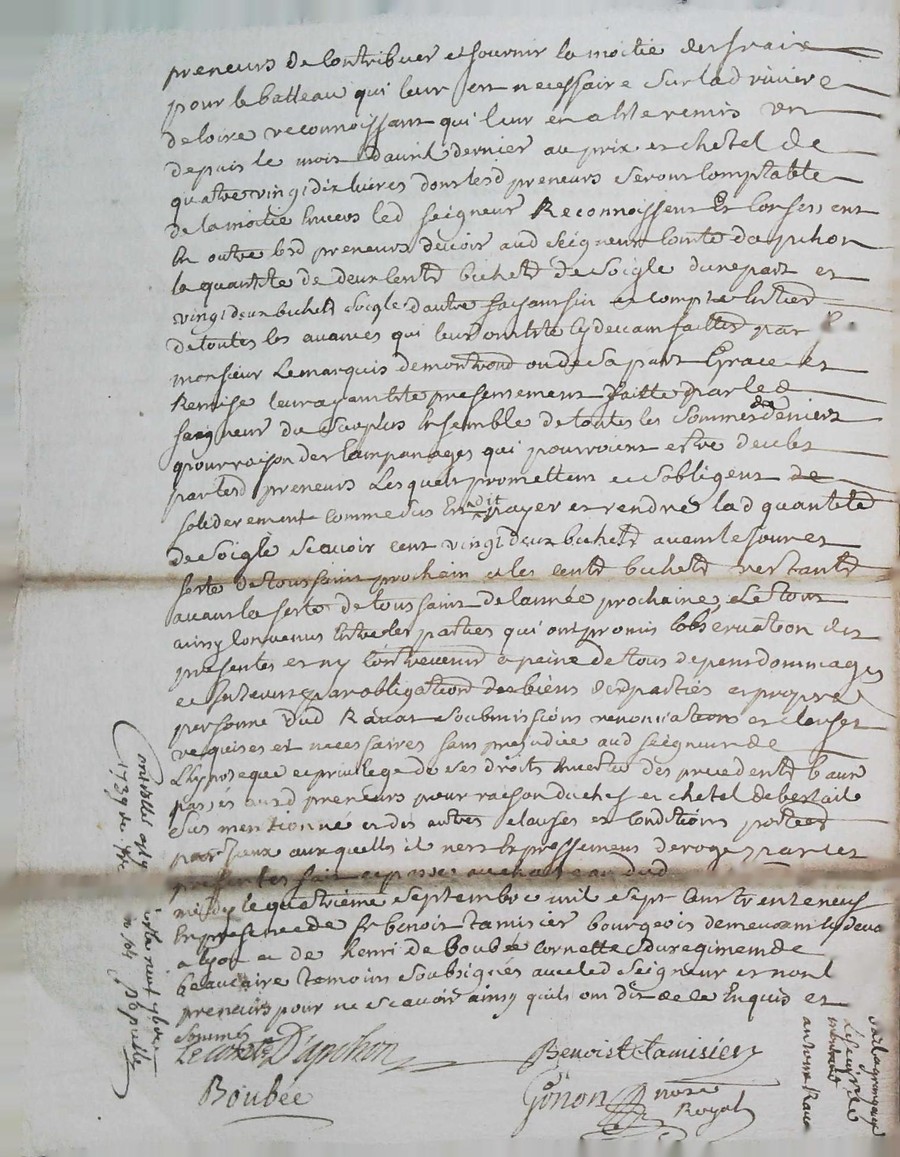 preneurs de contribuer et fournir la moitie des fraix
pour le batteau qui leur est necessaire sur lad riviere
de loire reconnoissant qui leur en a ete remis un
depuis le mois d'avril dernier au prix et chetel de
quatre vingt dix livres dont lesd preneurs seront comptable
de la moitie envers led seigneur Reconnoissent Et confessent
En outre lesd preneurs devoir aud seigneur comte dapchon
la quantité de deux cents bichets de seigle d'une part et
vingt deux bichets seigle d'autre faisant fin et compte entier
de toutes les avances qui leur ont ete cy devant faittes par
monsieur Le marquis de montrond ou de sa part Grace et
Remise leur ayant ete presentement faitte par led
seigneur du surplus Ensemble de toutes les sommes de deniers
pour raison des campanages qui pourroient estre deubs
par lesd preneurs Lesquels promettent et s'obligent de
soliderement comme dus Est dit payer et rendre lad quantité
de seigle scavoir cent vingt deux bichets avant le jour et
feste de toussaint prochain et les cents bichets restants
avant la feste de toussaint de l'année prochaine, Le tout
ainsy convenus entre les parties qui ont promis l'observation des
presentes et ny contrevenir a peine de tous depens dommages
et interets par obligation de biens desd parties et propre
personne dud Ravat soubmissions renonciations et clauses
requises et necessaires sans prejudice aud seigneur de
L'hypoteque et privilege de ses droits en vertu des precedents baux
passés ausd preneurs pour raison du chef et chetel de bestail
sus mentionné et des autres clauses et conditions portées
par iceux auxquelles il n'est Expressement deroge par les
presentes fait et passé au chateau dud
le quatrième septembre mil sept cent trente neuf
En presence de sr benoist tamisier bourgeois demeurant
a lyon et de henri de Boubée cornette du regiment de
beaucaire temoins soubsignés avec led seigneur et non l
preneurs pour ne scavoir ainsy quils ont dit de ce Enquis et
sommés
Le comte D'apchon
Benoist tamisier
Boubée
Gonon nore
Royal
1739
antoine Rava